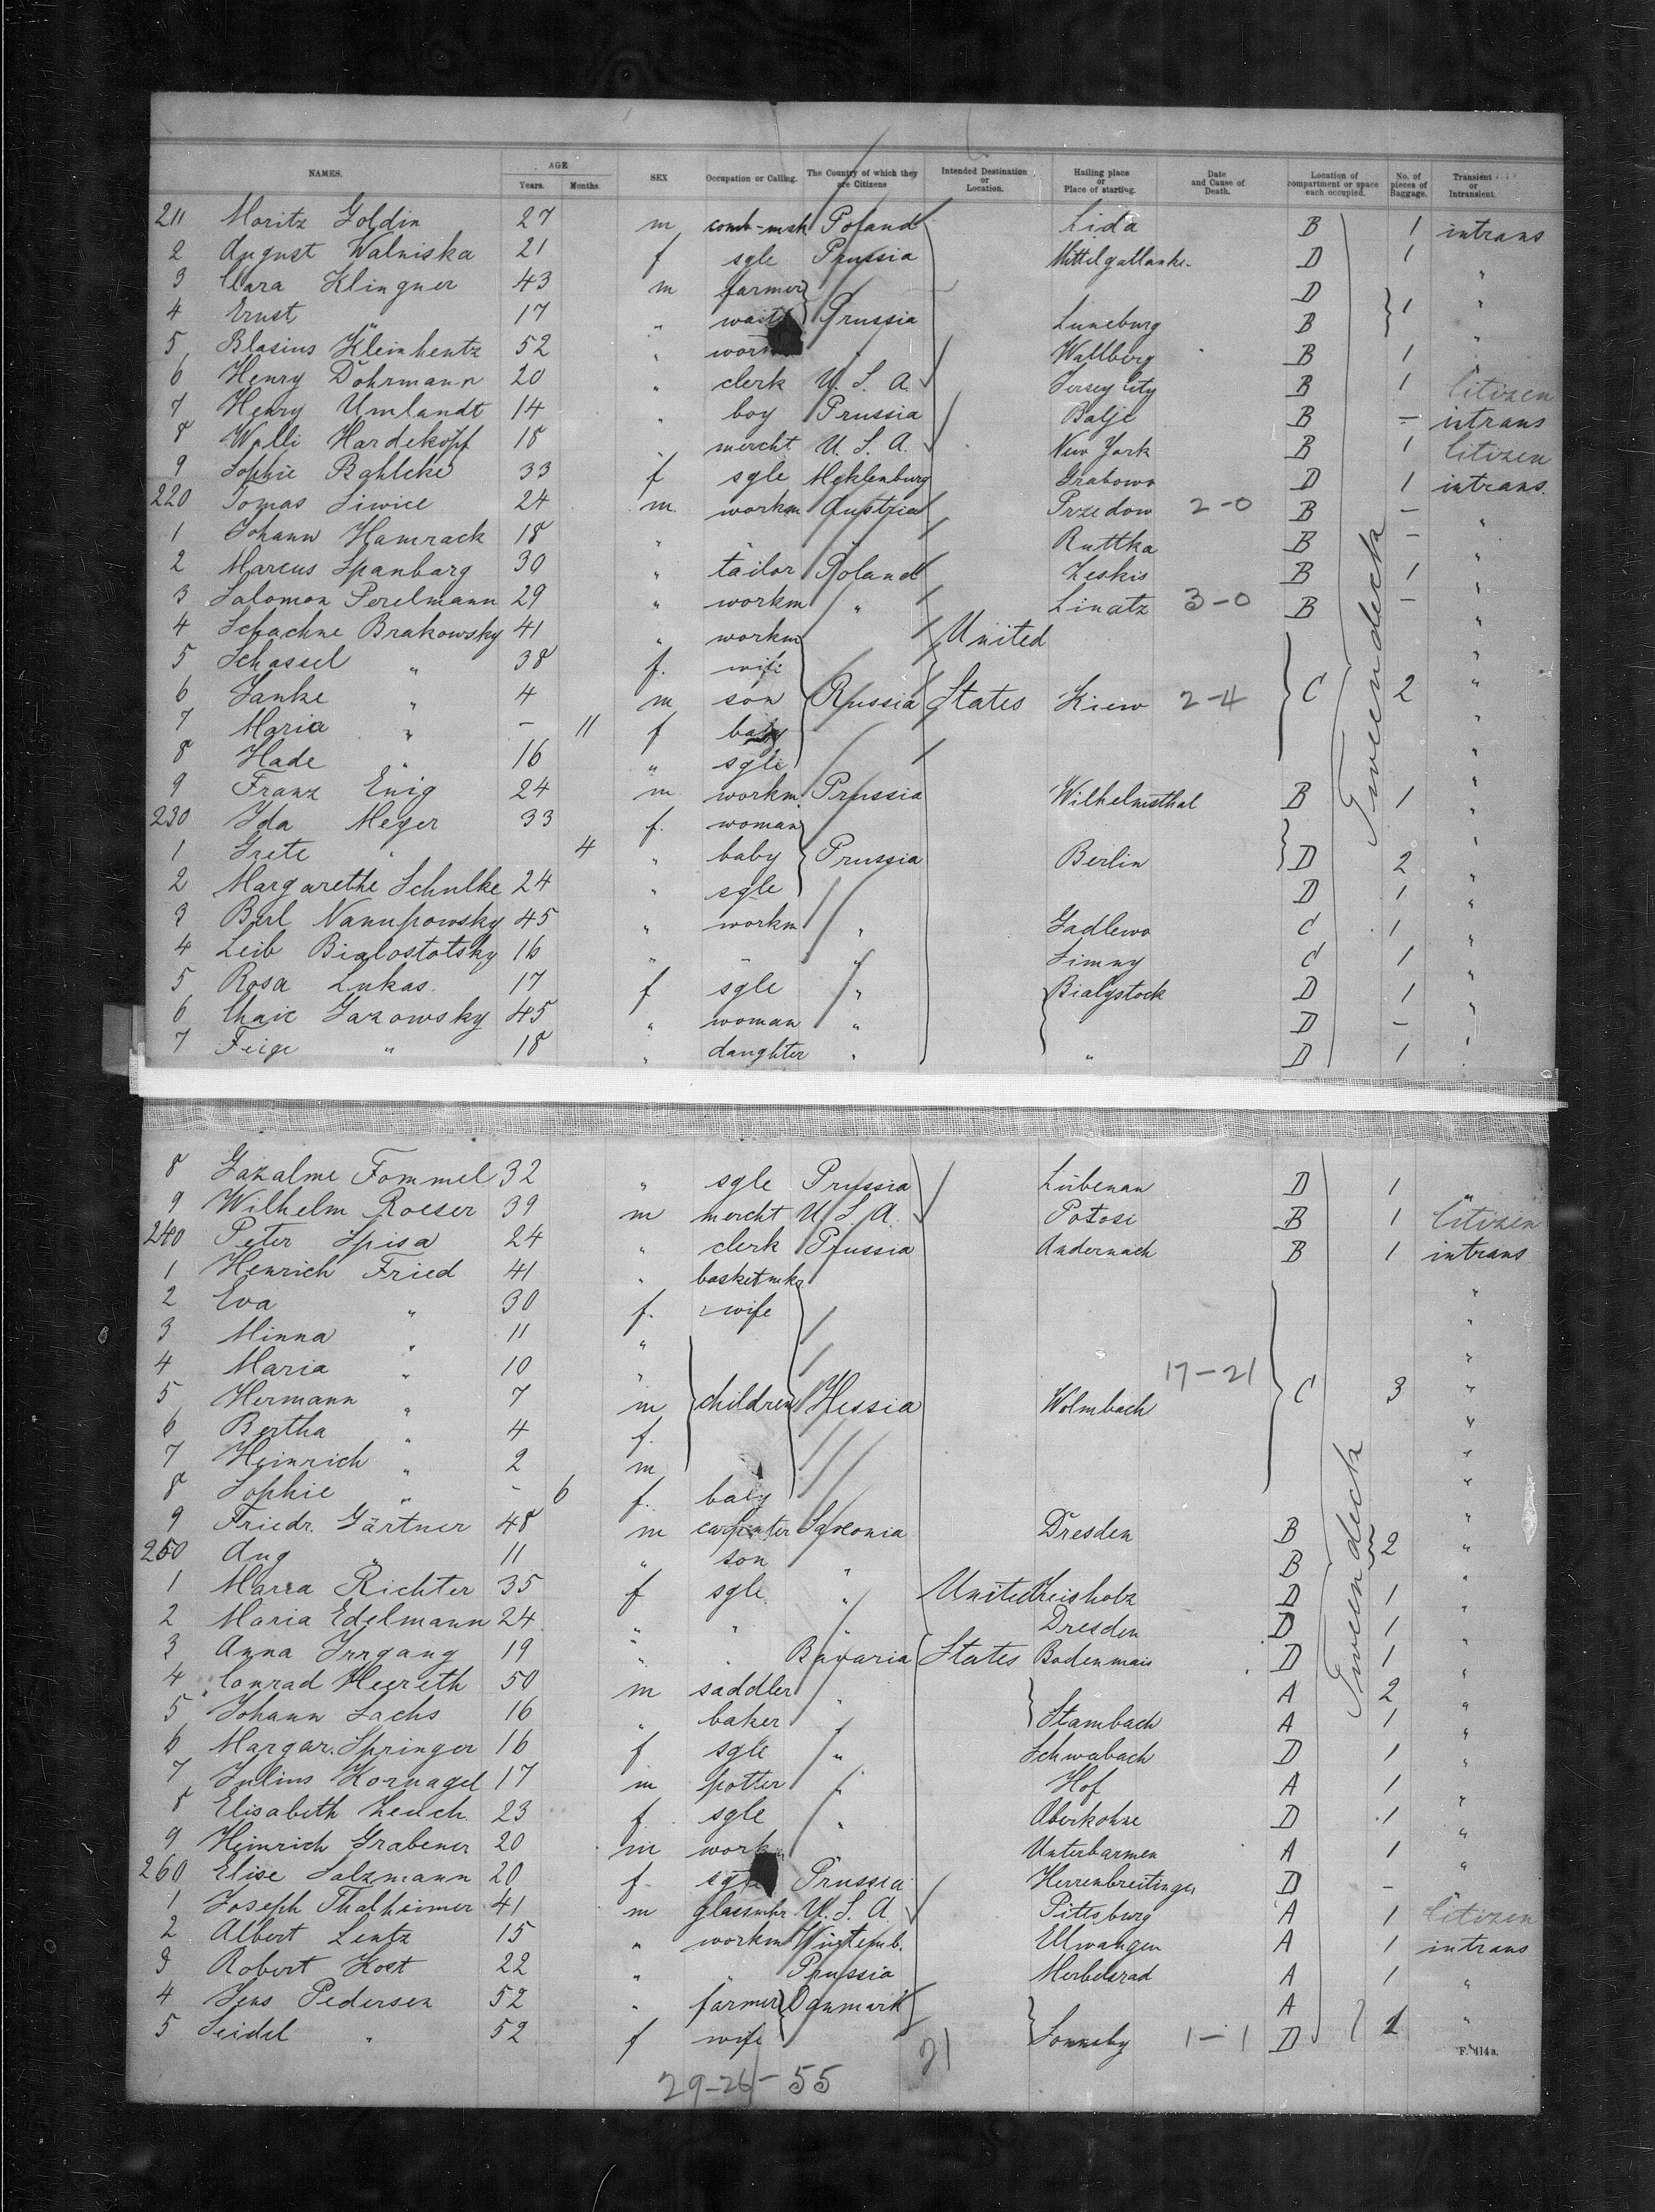 NAMES. AGE Years. Months. SEX Occupation or Calling. The Country of which they are Citizens Intended Destination or Location. Hailing place or Place of starting. Date and Cause of Death. Location of compartment or space each occupied. No. of pieces of Baggage. Transient or Intransient.
211 Moritz Goldin 27 m comb-mak Poland Lida B 1 intrans
2 August Walniska 21 f sgle Prussia D 1
3 Clara Klingner 43 m farmer D "
4 Ernst 17 " Prussia Luneburg B 1 "
5 Blasius Kleinhentz 52 " Wallberg B 1 "
6 Henry Dohrmann 20 " clerk U. S. A. Jersey City B 1 Citizen
7 Henry Umlandt 14 " boy Prussia Balje B – intrans
8 Willi Hardekopf 18 " mercht U. S. A. New York B 1 Citizen
9 Sophie Bahlcke 33 f sgle Meklenburg Grabown D 1 intrans.
220 Tomas Siwice 24 m workm Austria Przedow 2-0 B – "
1 Johann Hamrack 18 " " " Ruttka B – "
2 Marcus Spanbarg 30 " tailor Poland Leskis B 1 "
3 Salomon Perelmann 29 " workm " Linatz 3-0 B – "
4 Schachne Brakowsky 41 " workm United "
5 Schassel " 38 f. wife "
6 Janke " 4 m son Russia States Kiew 2-4 C 2 "
7 Maria " – 11 f baby "
8 Hade " 16 " sgle "
9 Franz Enig 24 m workm. Prussia Wilhelmsthal B 1 "
230 Ida Meyer 33 f. woman "
1 Grete " 4 " baby Prussia Berlin D 2 "
2 Margarethe Schulke 24 " sgle D 1 "
3 Berl Nanupowsky 45 " workm " Gadlewo C 1 "
4 Leib Bialostotsky 16 " " " Simny C 1 "
5 Rosa Lukas. 17 f sgle " Bialystock D 1 "
6 Chaie Gazowsky 45 " woman " D – "
7 Feige " 18 " daughter " " D 1 "
Tweendeck
8 Gazalme Fommel 32 " sgle Prussia Lübenau D 1 "
9 Wilhelm Roeser 39 m mercht U. S. A. Potosi B 1 Citizen
240 Peter Spisa 24 " clerk Prussia Andernach B 1 intrans
1 Henrich Fried 41 " basketmkr "
2 Eva " 30 f. wife "
3 Minna " 11 " "
4 Maria " 10 " 17-21 "
5 Hermann " 7 m children Hessia Wolmbach C 3 "
6 Bertha " 4 f. "
7 Heinrich " 2 m "
8 Sophie " – 6 f. baby "
9 Friedr. Gärtner 48 m carpenter Saxonia Dresden B 2 "
250 Aug " 11 " son " B "
1 Maria Richter 35 f sgle. " United Zeisholz D 1 "
2 Maria Edelmann 24 " " " Dresden D 1 "
3 Anna Irrgang 19 " " Bavaria States Bodenmais D 1 "
4 Conrad Heereth 50 m saddler " A 2 "
5 Johann Sachs 16 " baker " Stambach A 1 "
6 Margar. Springer 16 f sgle " Schwabach D 1 "
7 Julius Kornagel 17 m potter " Hof A 1 "
8 Elisabeth Zeuch 23 f. sgle " Oberkohne D 1 "
9 Heinrich Grabener 20 m workm Unterbarmen A 1 "
260 Elise Salzmann 20 f sgle Prussia Herrenbreitingen D – "
1 Joseph Thalheimer 41 m glassmkr U. S. A. Pittsburg A 1 Citizen
2 Albert Lentz 15 " workm Würtemb. Ellwangen A 1 intrans
3 Robert Kost 22 " " Prussia Merbelsrad A 1 "
4 Jens Pedersen 52 " farmer Danmark A "
5 Seidel " 52 f wife Sonnsby 1-1 D 1 "
Tweendeck
29-26-55 21
F. 414a.